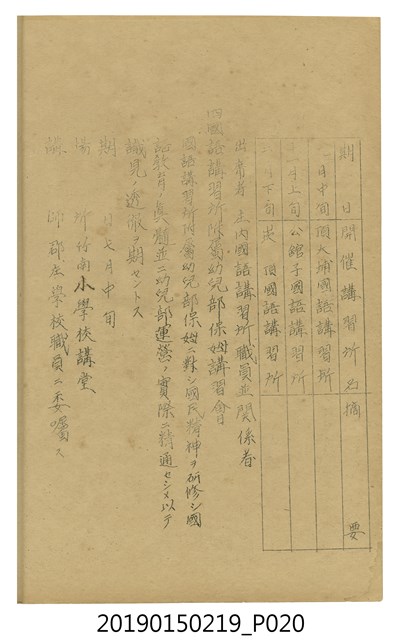 期日開催講習所名摘要
月中旬頂大埔國語講習所
月上旬公館子國語講習所
月下旬崁頂國語講習所
出席者 庄内國語講習所職員並關係者
四國語講習所附屬幼兒部保姆講習會
國語講習所附屬幼兒部保姆ニ對シ國民精神ヲ研修シ國
語教育ノ真髓並ニ幼兒部運營ノ實際ニ精通セシメ以テ
識見ノ透徹ヲ期セントス
期 七月中旬
場所 竹南小學校講堂
講師 郡庄學校職員ニ委囑ス
20190150219_P020